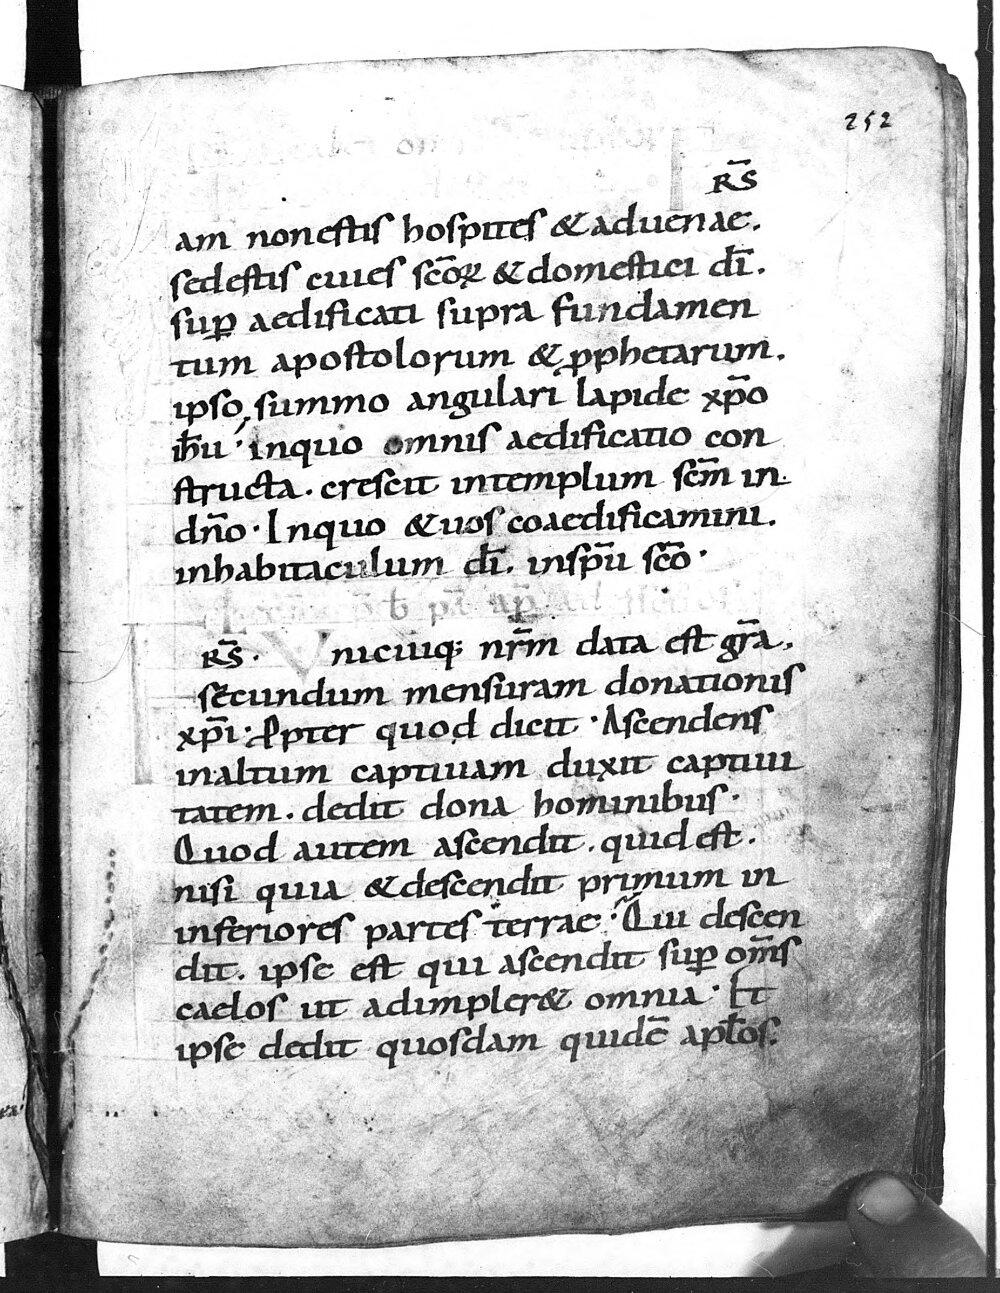 252
R̄S
am non estis hospites & aduenae.
sed estis ciues sc̄oꝝ & domestici dī.
suꝑ aedificati supra fundamen
tum apostolorum & ꝓphetarum.
ipso summo angulari lapide xp̄o
ih̄u. in quo omnis aedificatio con
structa. crescit in templum sc̄m in
dn̄o. In quo & uos coaedificamini.
in habitaculum dī. in sp̄u sc̄o.
R̄S. Vnicuiq; nr̄m data est gr̄a,
secundum mensuram donationis
xp̄i. Ꝓpter quod dicit. Ascendens
in altum captiuam duxit captiui
tatem. dedit dona hominibus.
Quod autem ascendit. quid est.
nisi quia & descendit primum in
inferiores partes terrae. Qui descen
dit. ipse est qui ascendit suꝑ om̄s
caelos ut adimpler& omnia. Et
ipse dedit quosdam quidē aplōs.